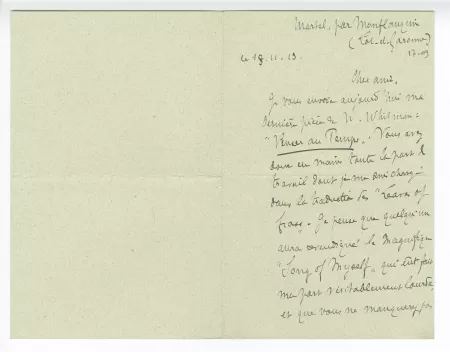 Martel, par Monflanquin
(Lot-et-Garonne)
17-09
le 18.11.13.
Cher ami,
Je vous envoie aujourd'hui ma
dernière pièce de W. Whitman :
"Pensées au Temps". Vous avez
donc en main toute la part de
travail dont je me suis chargé
dans la traduction des "Leaves of
Grass". Je pense que quelqu'un
aura revendiqué le magnifique
"Song of Myself", qui eût fait
ma part véritablement lourde,
et que vous ne manquerez pas